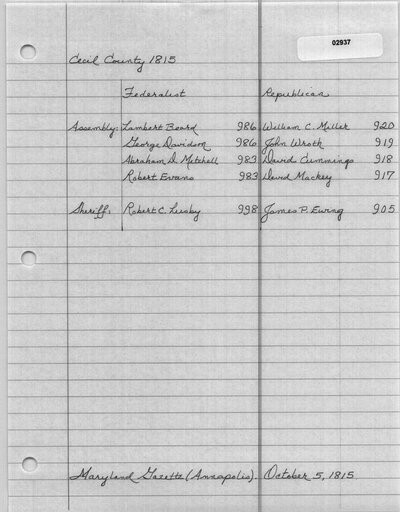 02937
Cecil County 1815
Federalist Republican
Assembly: Lambert Beard 986 William C. Miller 920
George Davidson 986 John Wroth 919
Abraham D. Mitchell 983 David Cummings 918
Robert Evans 983 David Mackey 917
Sheriff: Robert C. Lusby 998 James P. Ewing 905
Maryland Gazette (Annapolis). October 5, 1815